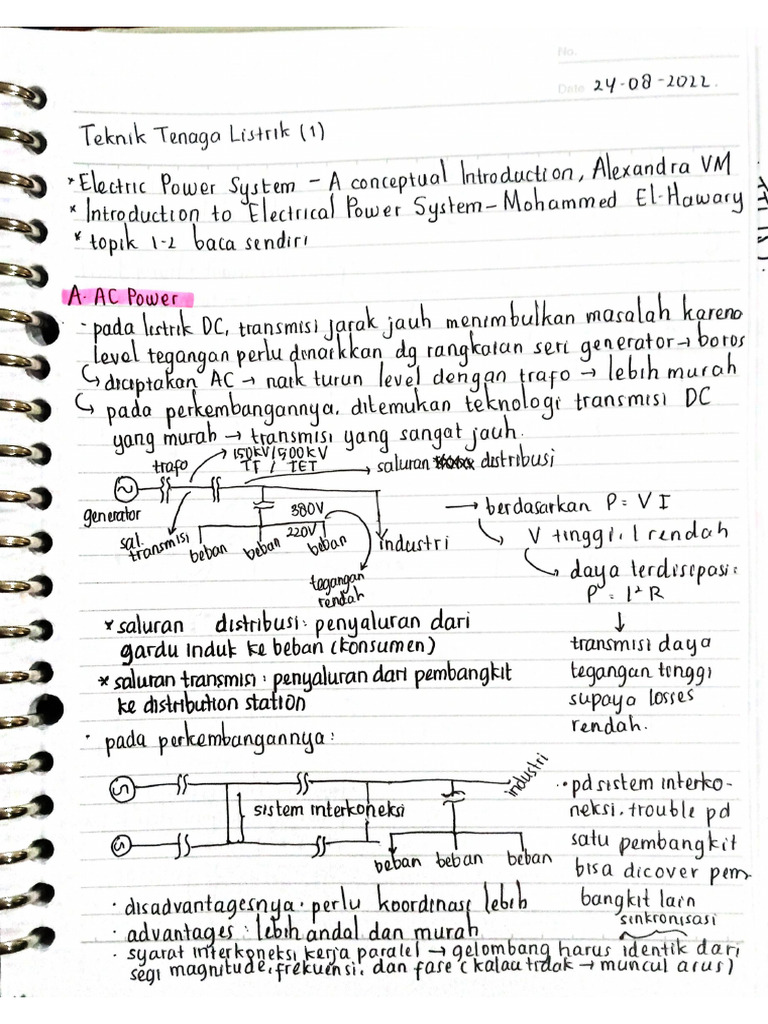 No.
Date 24-08-2022.
Teknik Tenaga Listrik (1)
* Electric Power System - A conceptual Introduction, Alexandra VM
* Introduction to Electrical Power System - Mohammed El-Hawary
* topik 1-2 baca sendiri
A. AC Power
· pada listrik DC, transmisi jarak jauh menimbulkan masalah karena
level tegangan perlu dinaikkan dg rangkaian seri generator → boros
↳ diciptakan AC → naik turun level dengan trafo → lebih murah
↳ pada perkembangannya, ditemukan teknologi transmisi DC
yang murah → transmisi yang sangat jauh.
trafo
150kV/500kV
TT / TET
→ saluran distribusi
generator
sal. transmisi
380V
220V
beban beban beban
industri
tegangan rendah
→ berdasarkan P = VI
↳ V tinggi, I rendah
↳ daya terdisepasi:
P = I²R
↓
transmisi daya
tegangan tinggi
supaya losses
rendah.
* saluran distribusi: penyaluran dari
gardu induk ke beban (konsumen)
* saluran transmisi: penyaluran dari pembangkit
ke distribution station
· pada perkembangannya:
industri
sistem interkoneksi
beban beban beban
· pd sistem interko-
neksi, trouble pd
satu pembangkit
bisa dicover pem-
bangkit lain
· disadvantagesnya: perlu koordinasi lebih
· advantages: lebih andal dan murah
sinkronisasi
· syarat interkoneksi kerja paralel → gelombang harus identik dari
segi magnitude, frekuensi, dan fase (kalau tidak → muncul arus)